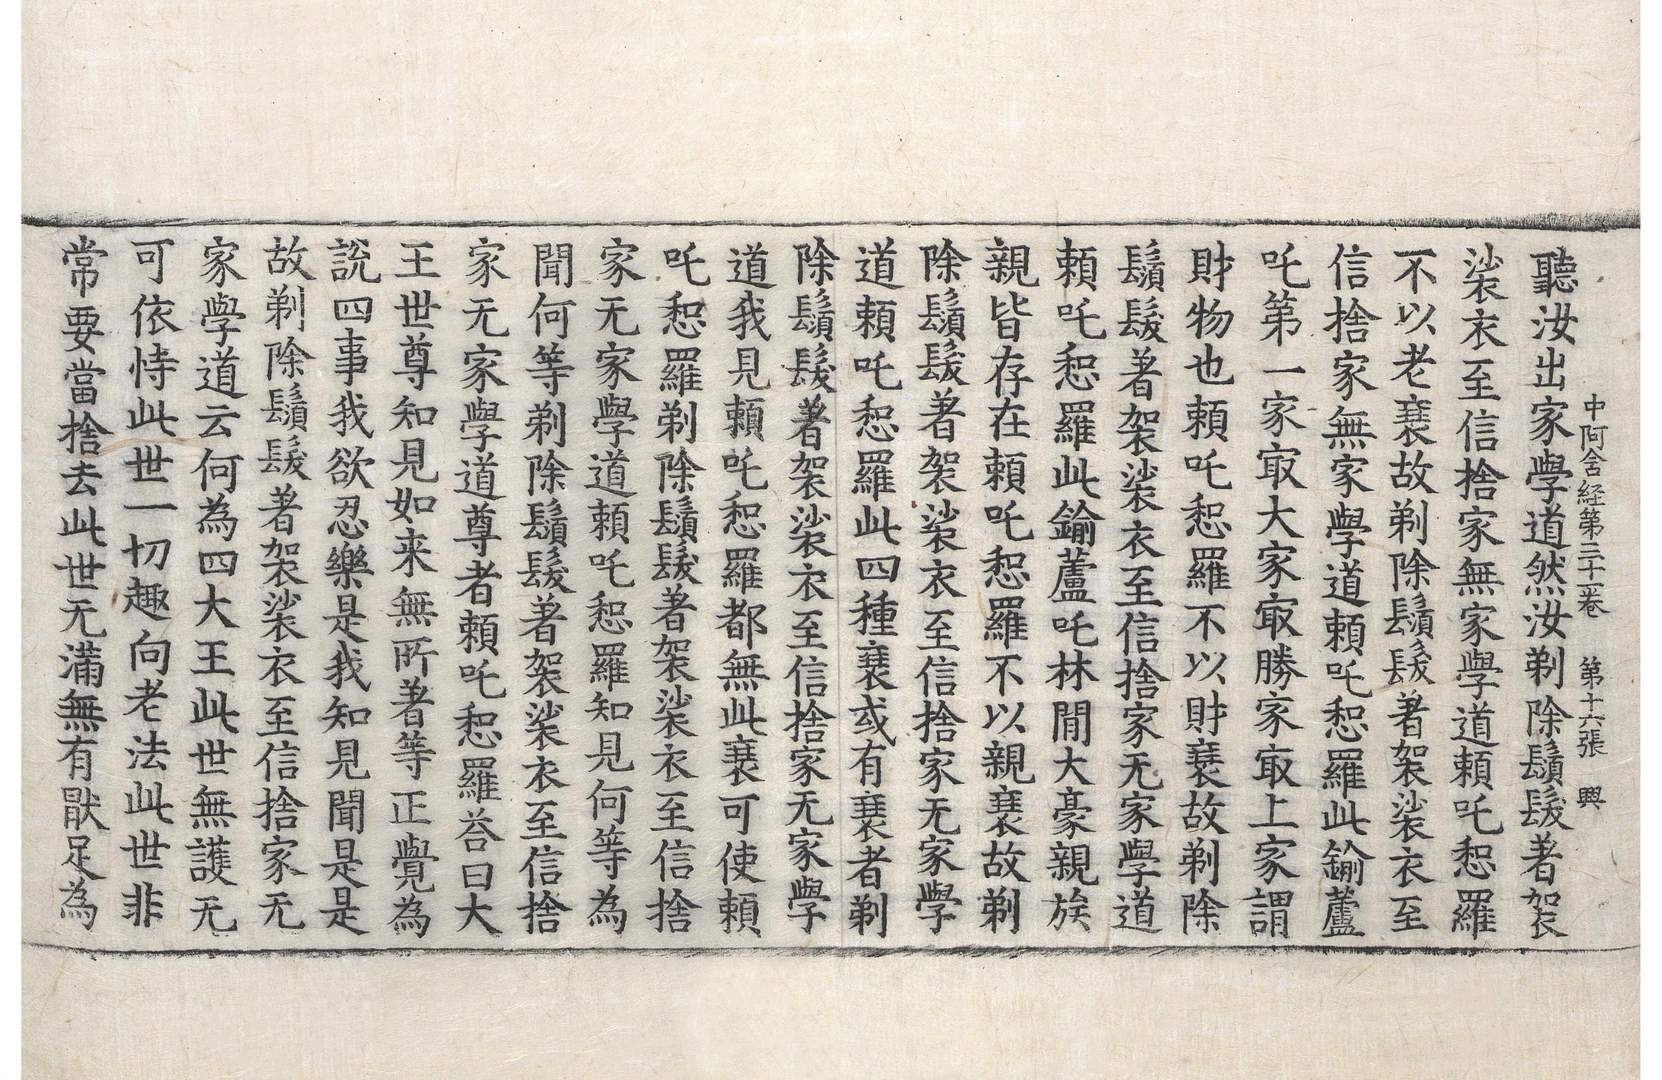 中阿含経第三十一卷　第十六張　興
聽汝出家學道然汝剃除鬚髮著袈
裟衣至信捨家無家學道頼吒惒羅
不以老衰故剃除鬚髮著袈裟衣至
信捨家無家學道頼吒惒羅此鍮蘆
吒第一家㝡大家㝡勝家㝡上家謂
財物也頼吒惒羅不以財衰故剃除
鬚髮著袈裟衣至信捨家无家學道
頼吒惒羅此鍮蘆吒林間大豪親族
親皆存在頼吒惒羅不以親衰故剃
除鬚髮著袈裟衣至信捨家无家學
道頼吒惒羅此四種衰或有衰者剃
除鬚髮著袈裟衣至信捨家无家學
道我見頼吒惒羅都無此衰可使頼
吒惒羅剃除鬚髮著袈裟衣至信捨
家无家學道頼吒惒羅知見何等為
聞何等剃除鬚髮著袈裟衣至信捨
家无家學道尊者頼吒惒羅荅曰大
王世尊知見如来無所著等正覺為
說四事我欲忍樂是我知見聞是是
故剃除鬚髮著袈裟衣至信捨家无
家學道云何為四大王此世無護无
可依恃此世一切趣向老法此世非
常要當捨去此世无滿無有猒足為